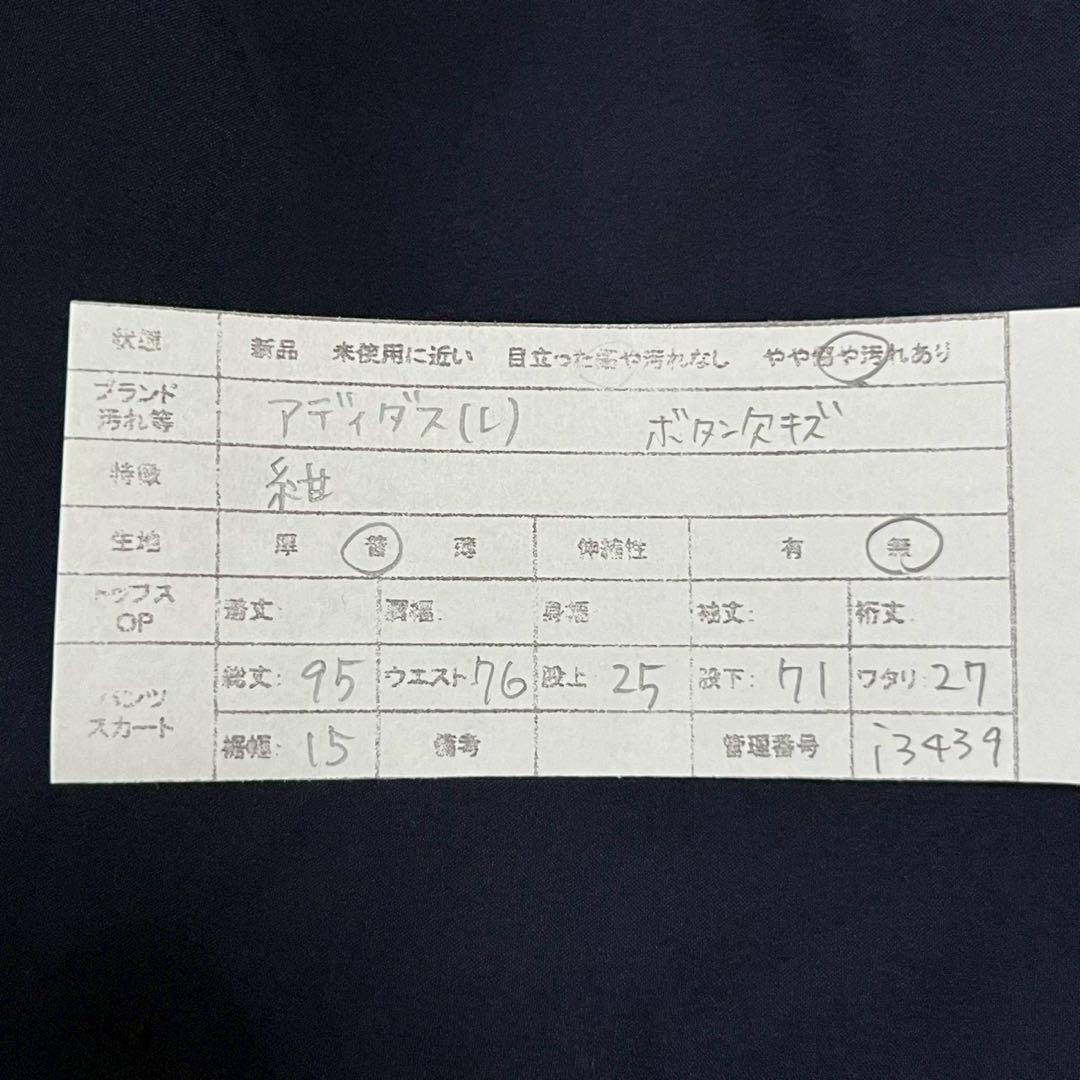 状態 新品 未使用に近い 目立った傷や汚れなし やや傷や汚れあり
ブランド
汚れ等 アディダス(L) ボタン欠キズ
特徴 紺
生地 厚 普 薄 伸縮性 有 無
トップス
OP 着丈: 肩幅: 身幅 袖丈: 裄丈:
パンツ
スカート 総丈: 95 ウエスト: 76 股上: 25 股下: 71 ワタリ: 27
裾幅: 15 備考 管理番号 i3439